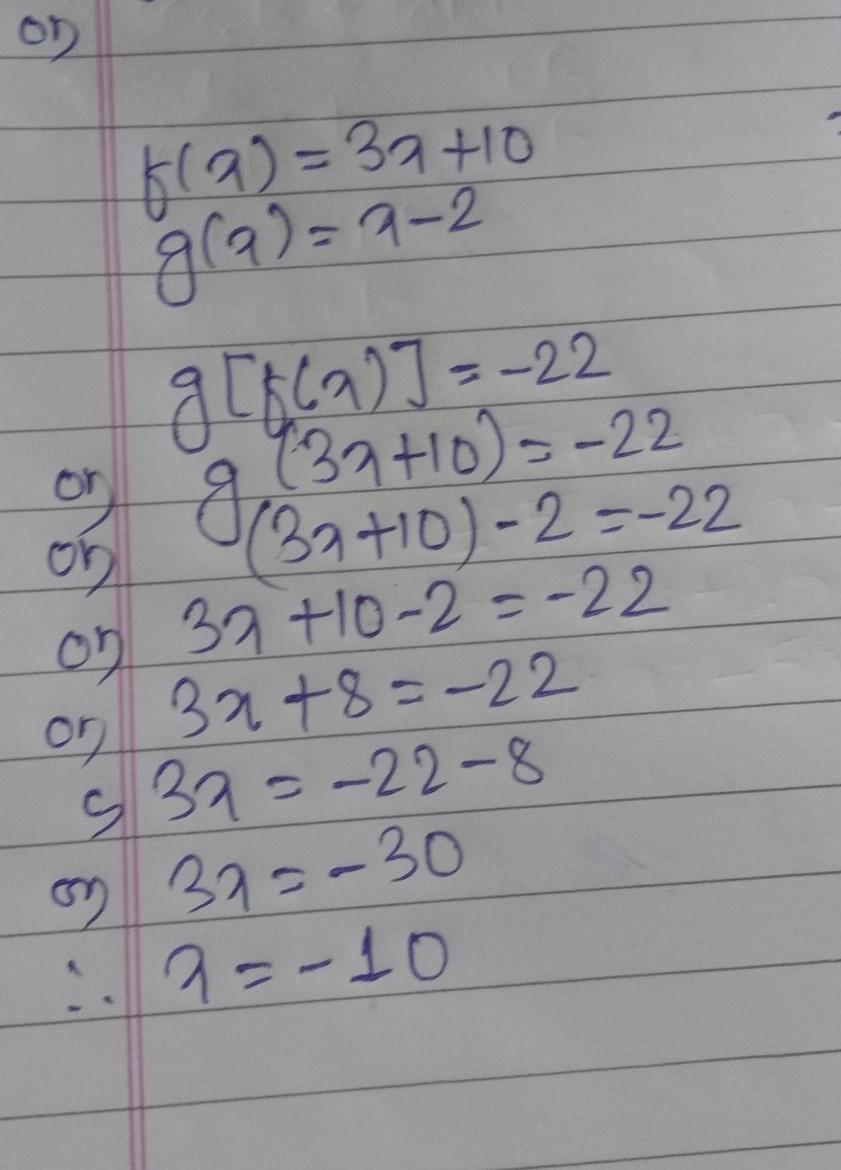 or
f(x) = 3x + 10
g(x) = x - 2
g[f(x)] = -22
or g(3x + 10) = -22
or (3x + 10) - 2 = -22
or 3x + 10 - 2 = -22
or 3x + 8 = -22
3x = -22 - 8
or 3x = -30
∴ x = -10